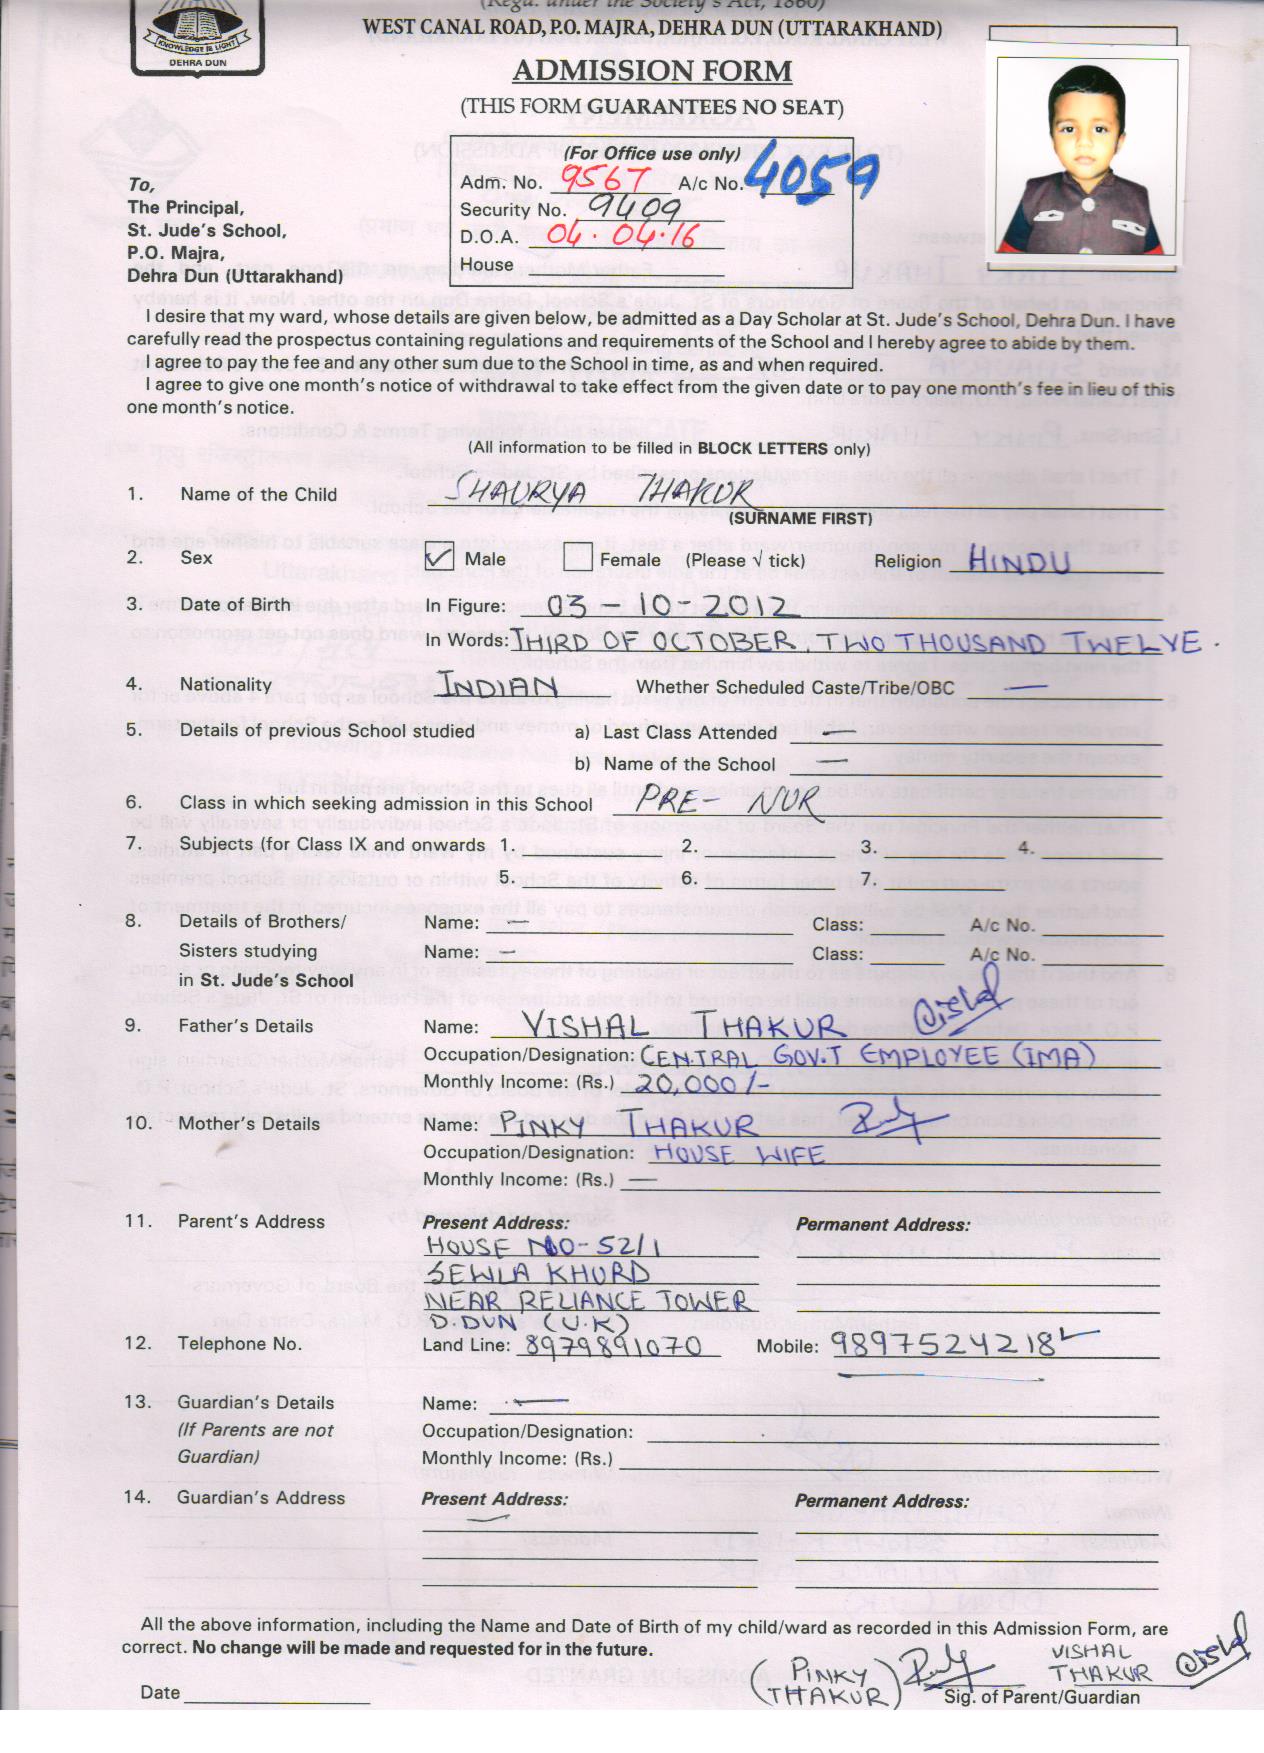 (Regd. under the Society's Act, 1860)
WEST CANAL ROAD, P.O. MAJRA, DEHRA DUN (UTTARAKHAND)
KNOWLEDGE IS LIGHT
DEHRA DUN
ADMISSION FORM
(THIS FORM GUARANTEES NO SEAT)
(For Office use only)
Adm. No. 9567 A/c No. 4059
Security No. 9409
D.O.A. 04.04.16
House
To,
The Principal,
St. Jude's School,
P.O. Majra,
Dehra Dun (Uttarakhand)
I desire that my ward, whose details are given below, be admitted as a Day Scholar at St. Jude's School, Dehra Dun. I have
carefully read the prospectus containing regulations and requirements of the School and I hereby agree to abide by them.
I agree to pay the fee and any other sum due to the School in time, as and when required.
I agree to give one month's notice of withdrawal to take effect from the given date or to pay one month's fee in lieu of this
one month's notice.
(All information to be filled in BLOCK LETTERS only)
1. Name of the Child SHAURYA THAKUR
(SURNAME FIRST)
2. Sex ✓ Male Female (Please √ tick) Religion HINDU
3. Date of Birth In Figure: 03-10-2012
In Words: THIRD OF OCTOBER, TWO THOUSAND TWELVE.
4. Nationality INDIAN Whether Scheduled Caste/Tribe/OBC —
5. Details of previous School studied a) Last Class Attended —
b) Name of the School —
6. Class in which seeking admission in this School PRE- NUR
7. Subjects (for Class IX and onwards 1. 2. 3. 4.
5. 6. 7.
8. Details of Brothers/ Name: — Class: A/c No.
Sisters studying Name: — Class: A/c No.
in St. Jude's School
9. Father's Details Name: VISHAL THAKUR Vishal
Occupation/Designation: CENTRAL GOV.T EMPLOYEE (IMA)
Monthly Income: (Rs.) 20,000/-
10. Mother's Details Name: PINKY THAKUR
Occupation/Designation: HOUSE WIFE
Monthly Income: (Rs.) —
11. Parent's Address Present Address: Permanent Address:
HOUSE NO-52/1
SEWLA KHURD
NEAR RELIANCE TOWER
D.DUN (U.K)
12. Telephone No. Land Line: 8979891070 Mobile: 9897524218
13. Guardian's Details Name: —
(If Parents are not Occupation/Designation:
Guardian) Monthly Income: (Rs.)
14. Guardian's Address Present Address: Permanent Address:
—
All the above information, including the Name and Date of Birth of my child/ward as recorded in this Admission Form, are
correct. No change will be made and requested for in the future.
(PINKY THAKUR) VISHAL THAKUR Vishal
Date Sig. of Parent/Guardian